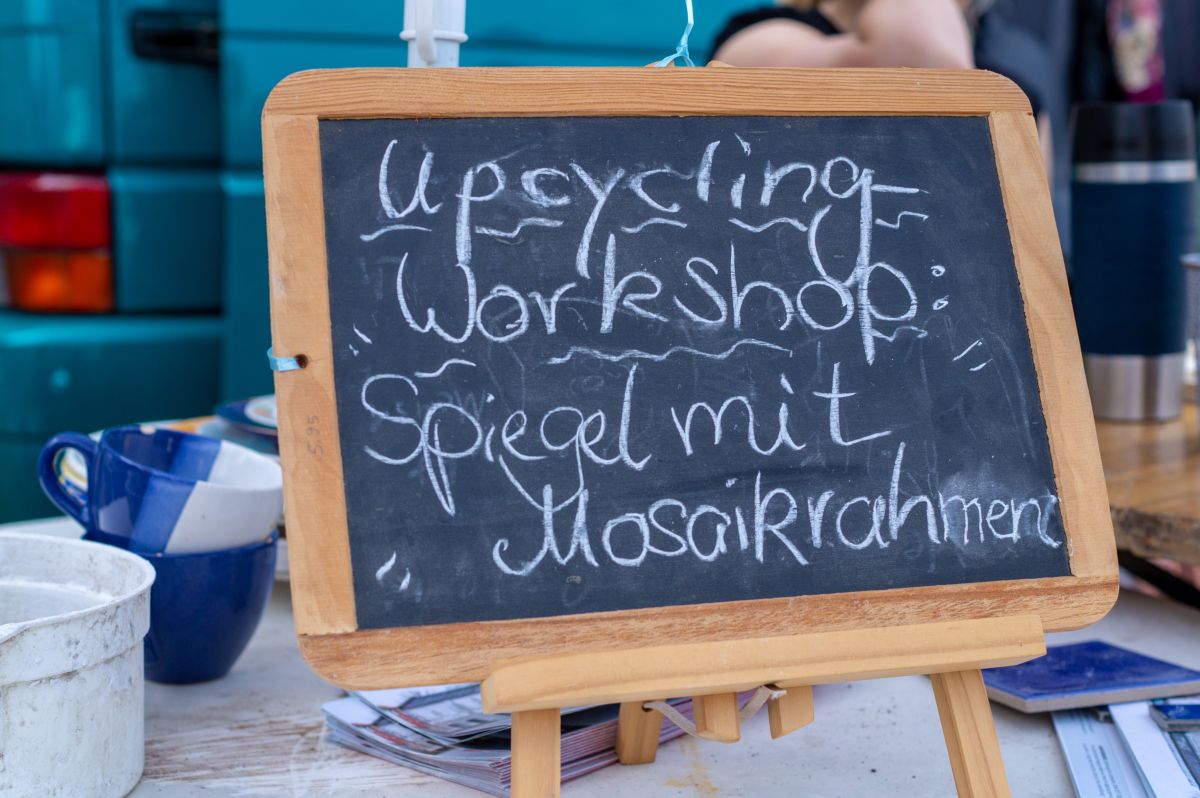 Upcycling-
Workshop:
Spiegel mit
Mosaikrahmen
5.95